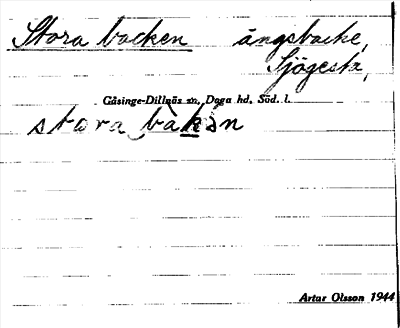 Stora backen ängsbacke,
Sjögesta,
Gåsinge-Dillnäs sn, Daga hd, Söd. l.
stora bàkən
Artur Olsson 1944